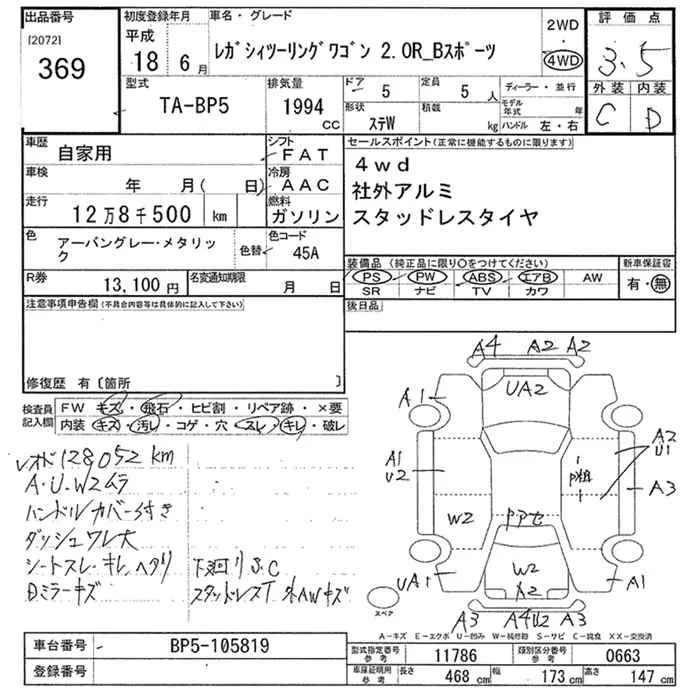 出品番号
[2072]
369
初度登録年月
平成
18 6月
車名・グレード
ﾚｶﾞｼｨﾂｰﾘﾝｸﾞﾜｺﾞﾝ 2.0R_Bｽﾎﾟｰﾂ
2WD
・
4WD
評価点
3.5
外装 内装
C D
型式
TA-BP5
排気量
1994
CC
ドア
5
定員
5人
形状
ｽﾃW
積載
kg
ディーラー・並行
モデル年式 年
ハンドル 左・右
車歴
自家用
シフト
FAT
車検
年 月( 日)
冷房
AAC
走行
12万8千500 km
燃料
ガソリン
色
アーバングレー・メタリック
色替
色コード
45A
R券
13,100円
名変通知期限
月 日
セールスポイント(正常に機能するものに限ります)
4wd
社外アルミ
スタッドレスタイヤ
装備品(純正品に限り○をつけてください)
PS PW ABS エアB AW
SR ナビ TV カワ
新車保証書
有・無
後日品
注意事項申告欄(不具合内容等は具体的に記入して下さい)
修復歴 有〔箇所 〕
検査員記入欄
FW キズ・飛石・ヒビ割・リペア跡・×要
内装 キズ・汚レ・コゲ・穴・スレ・キレ・破レ
レオド128052km
A・U・W2ムラ
ハンドルカバー付き
ダッシュワレ大
シートスレ・キレ、ヘタリ
Dミラーキズ
下廻りS.C
スタッドレスT 外AWキズ
A4 A2 A2
UA2
A1
A1
U2
A2
U1
A3
W2
W2
A2
UA1
A1
スペア
A3 A4U2 A3
A-キズ E-エクボ U-凹み W-補修跡 S-サビ C-腐食 XX-交換済
車台番号
BP5-105819
登録番号
型式指定番号
参考
11786
類別区分番号
参考
0663
車庫証明用
参考
長さ
468 cm
幅
173 cm
高さ
147 cm